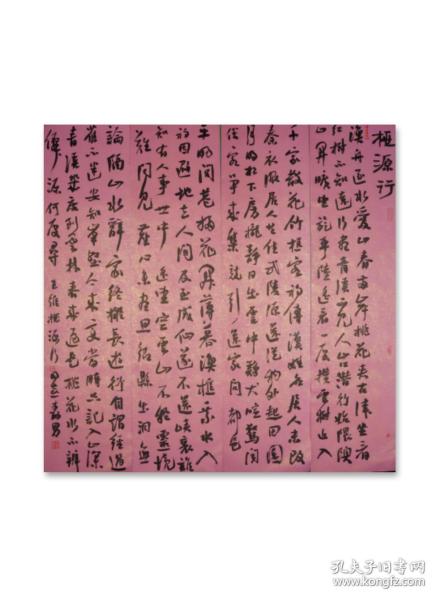 桃源行
漁舟逐水愛山春兩岸桃花夾古津坐看
红樹不知遠行盡青溪不見人山口潛行始隈隩
山開曠望旋平陸遥看一處攢雲樹近入
千家散花竹樵客初傳漢姓名居人未改
秦衣服居人共住武陵源還從物外起田園
月明松下房櫳静日出雲中雞犬喧驚聞
俗客争来集競引還家問都邑
平明閭巷掃花開薄暮漁樵乘水入
初因避地去人間及至成仙遂不還峡裏誰
知有人事世中遥望空雲山不疑靈境
難聞見塵心未盡思鄉縣出洞無
論隔山水辭家終擬長遊衍自謂經過
舊不迷安知峰壑今来變當時只記入山深
青溪幾度到雲林春来遍是桃花水不辨
仙源何處尋 王維桃源行
孔夫子旧书网